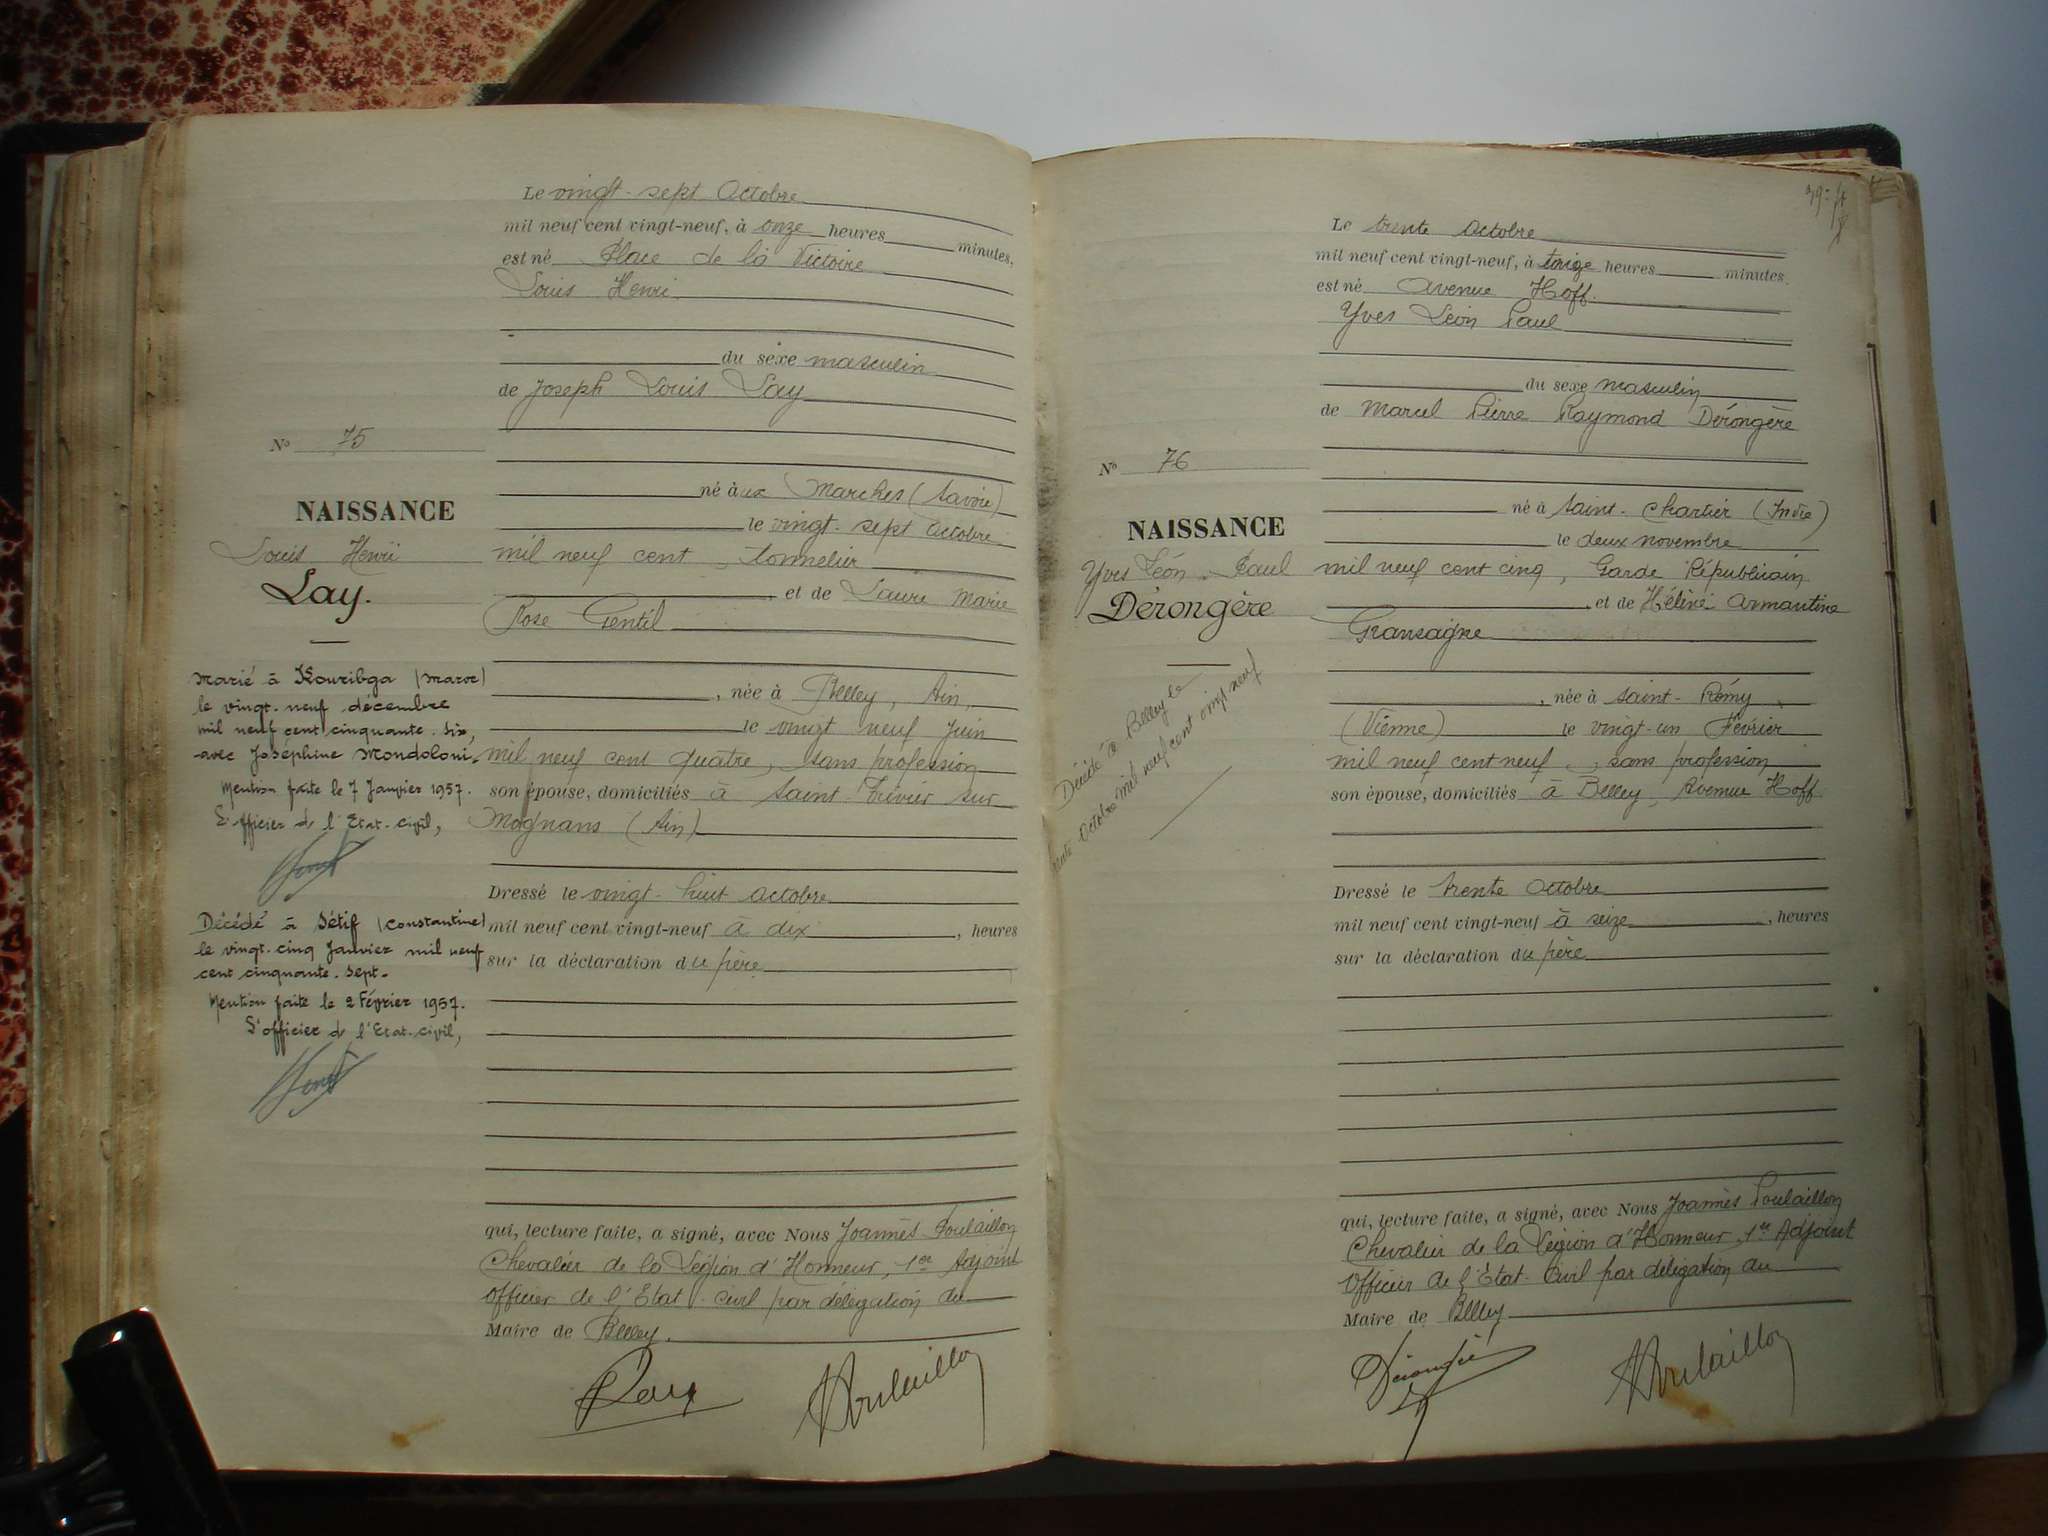 Le vingt-sept Octobre
mil neuf cent vingt-neuf, à onze heures minutes,
est né Place de la Victoire
Louis Henri
du sexe masculin
de Joseph Louis Lay
No 75
né à ux Marches (Savoie)
NAISSANCE
le vingt-sept Octobre
Louis Henri
mil neuf cent, tonnelier
Lay.
, et de Laure Marie
Rose Gentil
Marié à Kouribga (Maroc)
le vingt-neuf décembre
mil neuf cent cinquante-six,
avec Joséphine Mondoloni.
Mention faite le 7 Janvier 1957.
L'officier de l'Etat-civil,
, née à Belley, Ain,
le vingt neuf Juin
mil neuf cent quatre, sans profession
son épouse, domiciliés à Saint-Trivier sur
Mognans (Ain)
Dressé le vingt-huit Octobre
mil neuf cent vingt-neuf à dix, heures
sur la déclaration du père
Décédé à Sétif (Constantine)
le vingt-cinq Janvier mil neuf
cent cinquante-sept-
Mention faite le 2 Février 1957.
L'officier de l'Etat-civil,
qui, lecture faite, a signé, avec Nous Joannès Poulaillon
Chevalier de la Légion d'Honneur, 1er Adjoint
Officier de l'Etat-civil par délégation du
Maire de Belley.
Lay Poulaillon
Le trente Octobre
mil neuf cent vingt-neuf, à treize heures minutes.
est né Avenue Hoff.
Yves Léon Paul
du sexe masculin
de Marcel Pierre Raymond Dérongère
No 76
né à Saint-Chartier (Indre)
NAISSANCE
le deux novembre
Yves Léon Paul
mil neuf cent cinq, Garde Républicain
Dérongère
, et de Hélène Armantine
Gransagne
Décédé à Belley le
trente Octobre mil neuf cent vingt neuf
, née à Saint-Rémy,
(Vienne) le vingt-un Février
mil neuf cent neuf, sans profession
son épouse, domiciliés à Belley, Avenue Hoff
Dressé le trente Octobre
mil neuf cent vingt-neuf à seize, heures
sur la déclaration du père
qui, lecture faite, a signé, avec Nous Joannès Poulaillon
Chevalier de la Légion d'Honneur, 1er Adjoint
Officier de l'Etat-Civil par délégation du
Maire de Belley
Dérongère Poulaillon